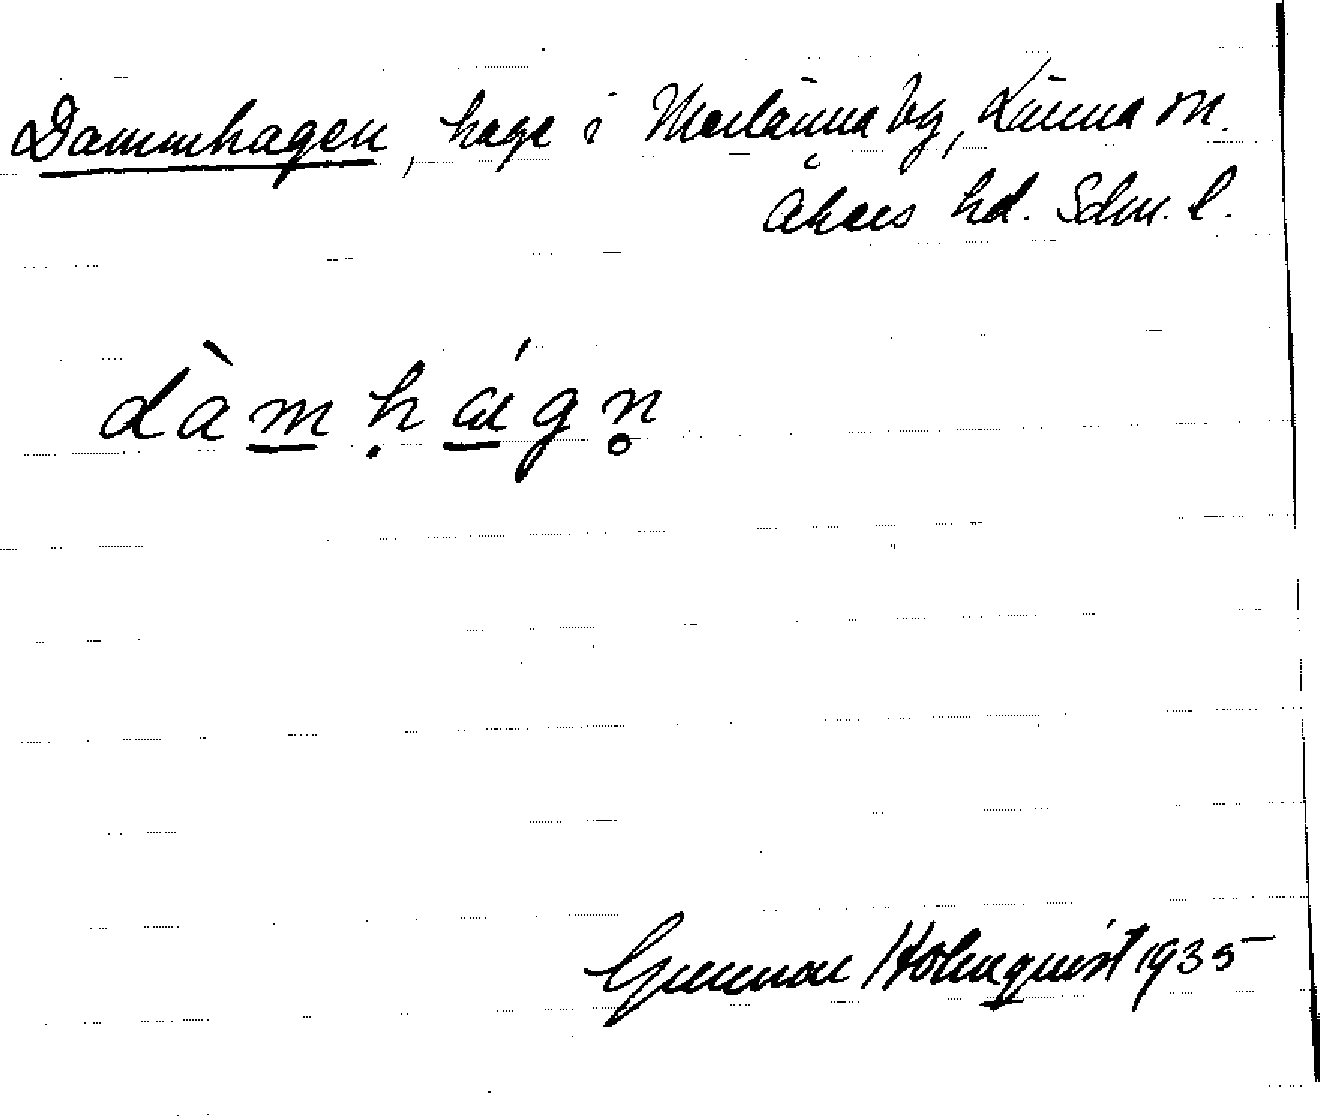 Dammhagen, hage i Merlänna by, Länna sn.
Åkers hd. Sdm. l.
dàmhágn
Gunnar Holmquist 1935